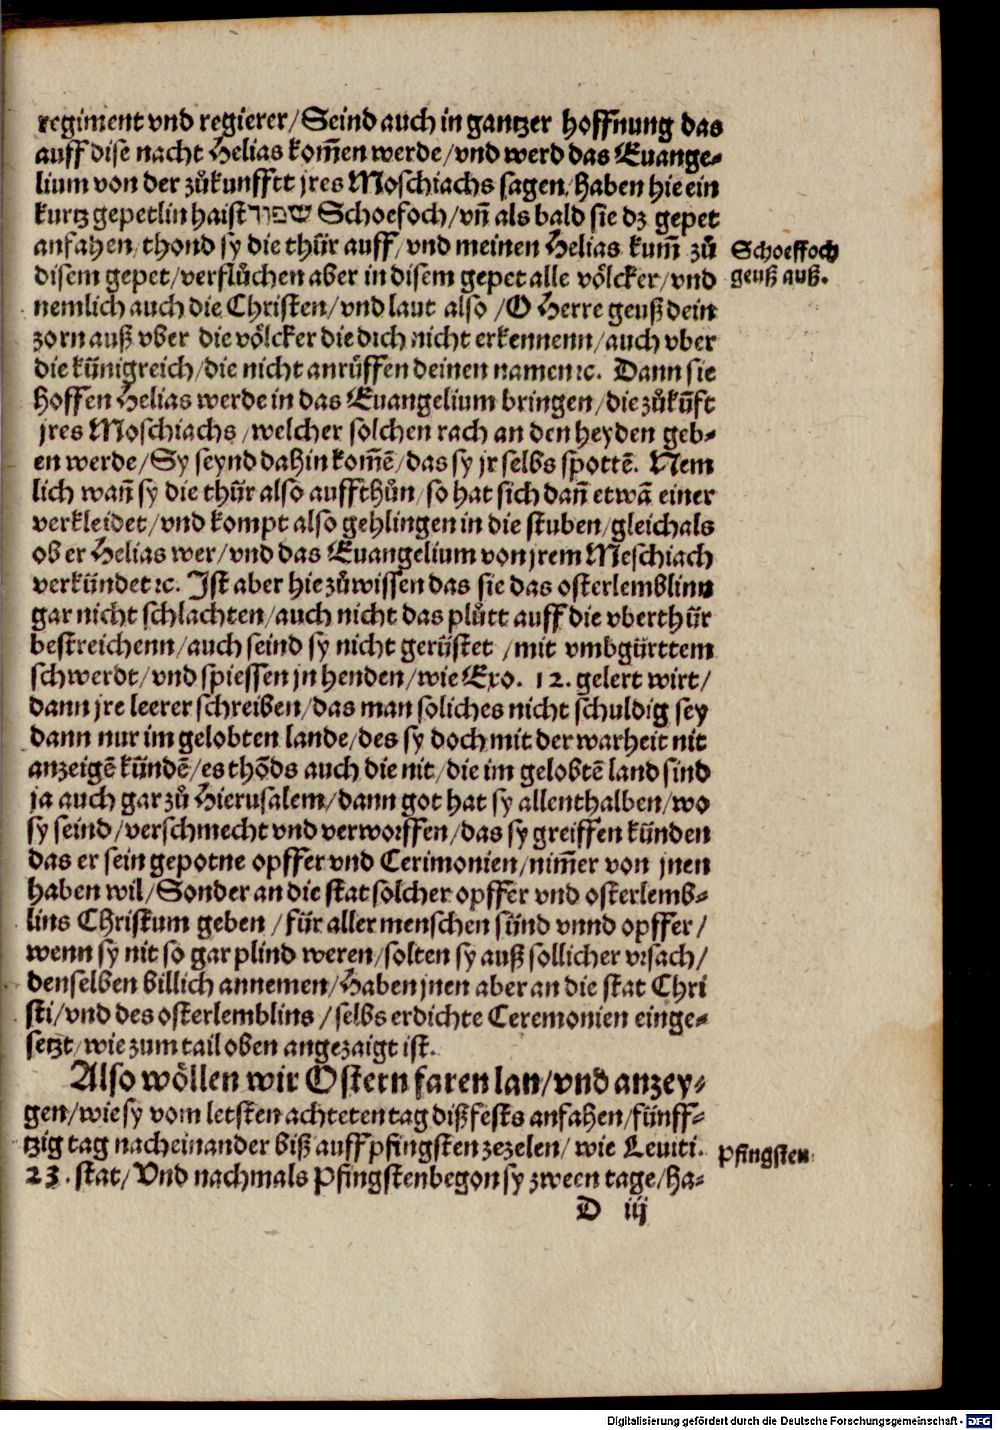 regiment vnd regierer/Seind auch in gantzer hoffnung das
auff dise nacht Helias kom̃en werde/vnd werd das Euange-
lium von der zůkunfftt jres Moschiachs sagen/haben hie ein
kurtz gepetlin haist שפוך Schoefoch/vn̄ als bald sie dz gepet
anfahen/thond sy die thür auff/vnd meinen Helias kum̃ zů
Schoeffoch
disem gepet/verflůchen aber in disem gepet alle völcker/vnd
geuß auß.
nemlich auch die Christen/vnd laut also/O Herre geuß dein
zorn auß vber die völcker die dich nicht erkennenn/auch vber
die künigreich/die nicht anrůffen deinen namen ꝛc. Dann sie
hoffen Helias werde in das Euangelium bringen/die zůkūft
jres Moschiachs/welcher solchen rach an den heyden geb-
en werde/Sy seynd dahin kom̃ē/das sy jr selbs spottē. Nem
lich wan̄ sy die thür also auffthůn/so hat sich dan̄ etwā einer
verkleidet/vnd kompt also gehlingen in die stuben/gleich als
ob er Helias wer/vnd das Euangelium von jrem Meschiach
verkündet ꝛc. Ist aber hie zůwissen das sie das osterlemblinn
gar nicht schlachten/auch nicht das plůtt auff die vberthür
bestreichenn/auch seind sy nicht gerüstet/mit vmbgürttem
schwerdt/vnd spiessen jn henden/wie Exo. 12. gelert wirt/
dann jre leerer schreiben/das man soliches nicht schuldig sey
dann nur im gelobten lande/des sy doch mit der warheit nit
anzeigē kündē/es thōds auch die nit/die im gelobtē land sind
ja auch gar zů Hierusalem/dann got hat sy allenthalben/wo
sy seind/verschmecht vnd verworffen/das sy greiffen künden
das er sein gepotne opffer vnd Cerimonien/nim̃er von jnen
haben wil/Sonder an die stat solcher opffer vnd osterlemb-
lins Christum geben/für aller menschen sünd vnnd opffer/
wenn sy nit so gar plind weren/solten sy auß sollicher vrsach/
denselben billich annemen/Haben jnen aber an die stat Chri
sti/vnd des osterlemblins/selbs erdichte Ceremonien einge-
setzt/wie zum tail oben angezaigt ist.
Also wöllen wir Ostern faren lan/vnd anzey-
gen/wie sy vom letsten achteten tag diß fests anfahen/fünff-
tzig tag nacheinander biß auff pfingsten zezelen/wie Leuiti.
Pfingsten
23. stat/Vnd nachmals Pfingsten begon sy zween tage/ha-
D iij
Digitalisierung gefördert durch die Deutsche Forschungsgemeinschaft - DFG